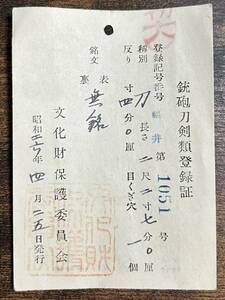 銃砲刀剣類登録証
登録記号番号 福井 第 1051 号
種別 刀 長さ 二尺二寸七分0厘
反り 寸四分0厘 目くぎ穴 一個
銘文 表 無銘
裏
文化財保護委員会
昭和二六年四月二五日発行